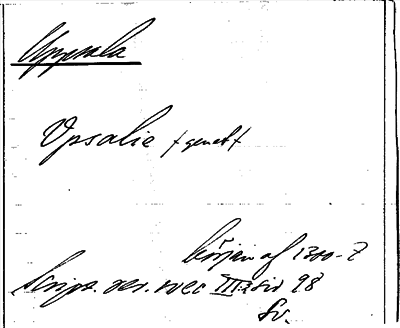 Uppsala
Vpsalie (genet)
början af 1300-t
Script. rer. svec III:2 sid 98
Sv.